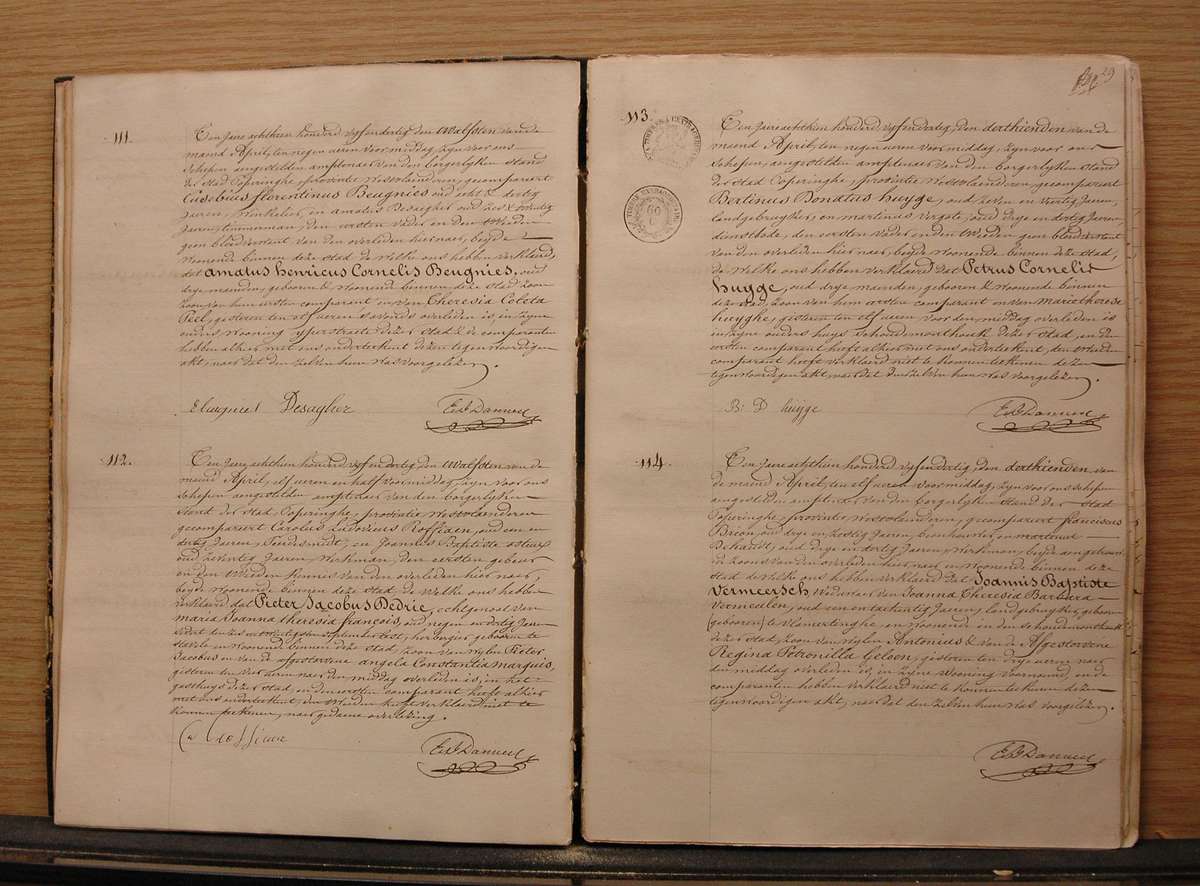 111.
Ten Jaere achthien honderd vyf en dertig den twalfsten van de
maend April, ten negen ueren voor middag, zyn voor ons
schepen aengestelden amptenaer van den borgerlyken Stand
der stad Poperinghe, provintie Westvlaenderen, gecompareert
Eusebius florentinus Beugnies oud acht & dertig
Jaeren, Winkelier, en amatus Desagher oud zes & twintig
Jaeren, timmerman, den eersten vader en den tweeden
geen bloedverwant van den overleden hiernaer, beyde
woonende binnen deze stad de welke ons hebben verklaerd,
dat amatus henricus Cornelis Beugnies, oud
drye maenden, geboren & woonend binnen deze stad zoon
zoon van hem eersten comparant en van Theresia Coleta
Peel, gisteren ten elf ueren s'avonds overleden is in zyne
ouders wooning yperstraete dezer stad & de comparanten
hebben alhier met ons onderteekent dezen tegenwoordigen
akt, naer dat den zelven hun was voorgelezen.
Desagher
112.
Ten Jaere achthien honderd vyf en dertig den twalfsten van de
maend April, elf ueren en half voormiddag, zyn voor ons
schepen aengestelden amptenaer van den borgerlyken
Stand der stad Poperinghe, provintie Westvlaenderen
gecompareert Carolus Ludovicus Roffiaen, oud een en
dertig Jaeren, en Joannes Baptiste
oud zeventig Jaeren, Werkman, den eersten gebuer
en den tweeden kennis van den overleden hier naer,
beyde woonende binnen deze stad, de Welke ons hebben
verklaerd dat Pieter Jacobus Dedrie, echtgenoot van
maria Joanna theresia françois, oud negen en dertig Jaeren
sedert den zes en twintigsten september lest, herbergier, geboren te
stavele en woonend binnen deze stad, zoon van wylen Pieter
Jacobus en van de afgestorvene angela Constantia marquis,
gisteren ten vier uren naer den middag overleden is, in het
gasthuys dezer stad, en den eersten comparant heeft alhier
met ons onderteekent, den tweeden heeft verklaerd niet te
konnen teekenen, naer gedaene overlezing.
113.
29
Ten Jaere achthien honderd vyf en dertig, den derthienden van de
maend April, ten negen ueren voor middag, zyn voor ons
schepen, aengestelden amptenaer van den borgerlyken stand
der stad Poperinghe, provintie Westvlaenderen, gecompareert
Bertinus Donatus huyge, oud zeven en veertig Jaeren,
landgebruyker, en martinus Vergote, oud drye en dertig Jaeren
dienstbode, den eersten vader en den tweeden geen bloedverwant
van den overleden hier naer, beyde woonende binnen deze stad,
de Welke ons hebben verklaerd dat Petrus Cornelis
huyge, oud drye maenden, geboren & woonend binnen
deze stad, zoon van hem eersten comparant en van marie therese
huyghe, gisteren ten elf ueren voor den middag overleden is
in zyne ouders huys schoudemonthoek dezer stad, en den
eersten comparant heeft alhier met ons onderteekent, den tweeden
comparant heeft verklaerd niet te konnen teekenen dezen
tegenwoordigen akt, naer dat den zelven hun was voorgelezen.
B: D huyge
114.
Ten Jaere achthien honderd vyf en dertig, den derthienden van
de maend April, ten elf ueren voor middag, zyn voor ons schepen
aengestelden amptenaer van den borgerlyken stand der stad
Poperinghe, provintie Westvlaenderen, gecompareert franciscus
Brion, oud drye en zestig Jaeren, beenhouwer, en martinus
Behandt, oud drye en dertig Jaeren, Werkman, beyde aengetrouwde
zoons van den overleden hier naer en woonende binnen deze
stad de Welke ons hebben verklaerd dat Joannis Baptiste
Vermeersch, Weduwaer van Joanna Theresia Barbara
Vermeulen, oud een en tachentig Jaeren, landgebruyker, geboren
(geboren) te Vlamertinghe en woonende in den schoudemonthoek
dezer stad, zoon van wylen Antonius & van de Afgestorvene
Regina Petronilla Geloen, gisteren ten drye ueren naer
den middag overleden is, in zyne wooning voornoemd, en de
comparanten hebben verklaerd niet te konnen teekenen dezen
tegenwoordigen akt, naer dat den zelven hun was voorgelezen.